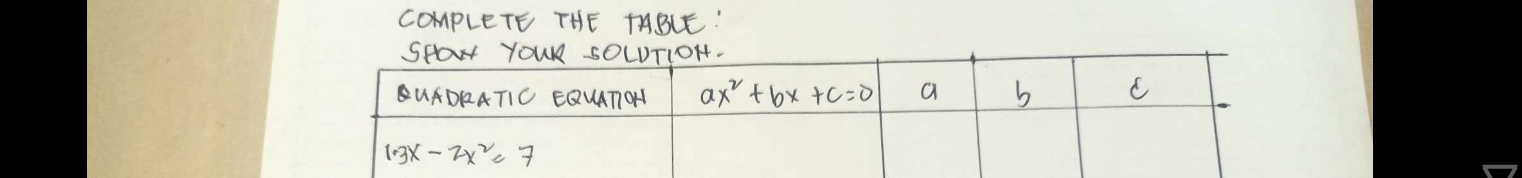 COMPLETE THE TABLE:
SHOW YOUR SOLUTION.
QUADRATIC EQUATION ax² + bx + c = 0 a b c
1. 3x - 2x² = 7